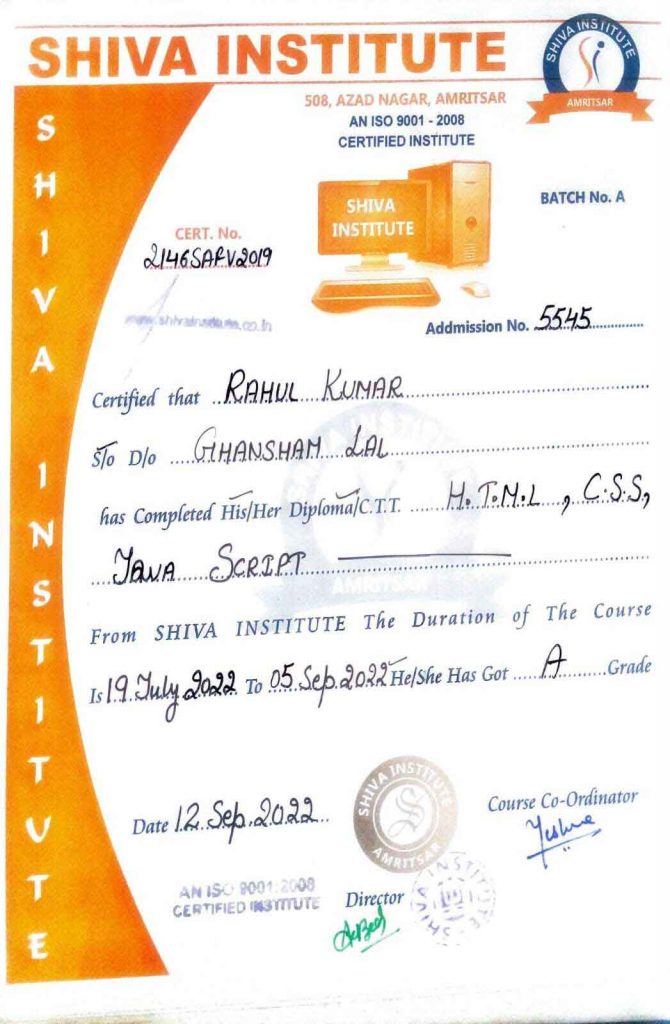 SHIVA INSTITUTE
SHIVA INSTITUTE
AMRITSAR
508, AZAD NAGAR, AMRITSAR
AN ISO 9001 - 2008
CERTIFIED INSTITUTE
SHIVA INSTITUTE
SHIVA
INSTITUTE
BATCH No. A
CERT. No.
2146SAFV2019
www.shivainstitute.co.in
Addmission No. 5545
Certified that RAHUL KUMAR
S/o D/o GHANSHAM LAL
has Completed His/Her Diploma/C.T.T. H.T.M.L , C.S.S,
JAVA SCRIPT
AMRITSAR
From SHIVA INSTITUTE The Duration of The Course
Is 19 July 2022 To 05 Sep. 2022 He/She Has Got A Grade
Date 12 Sep. 2022
SHIVA INSTITUTE
AMRITSAR
Course Co-Ordinator
AN ISO 9001:2008
CERTIFIED INSTITUTE
Director
SHIVA INSTITUTE